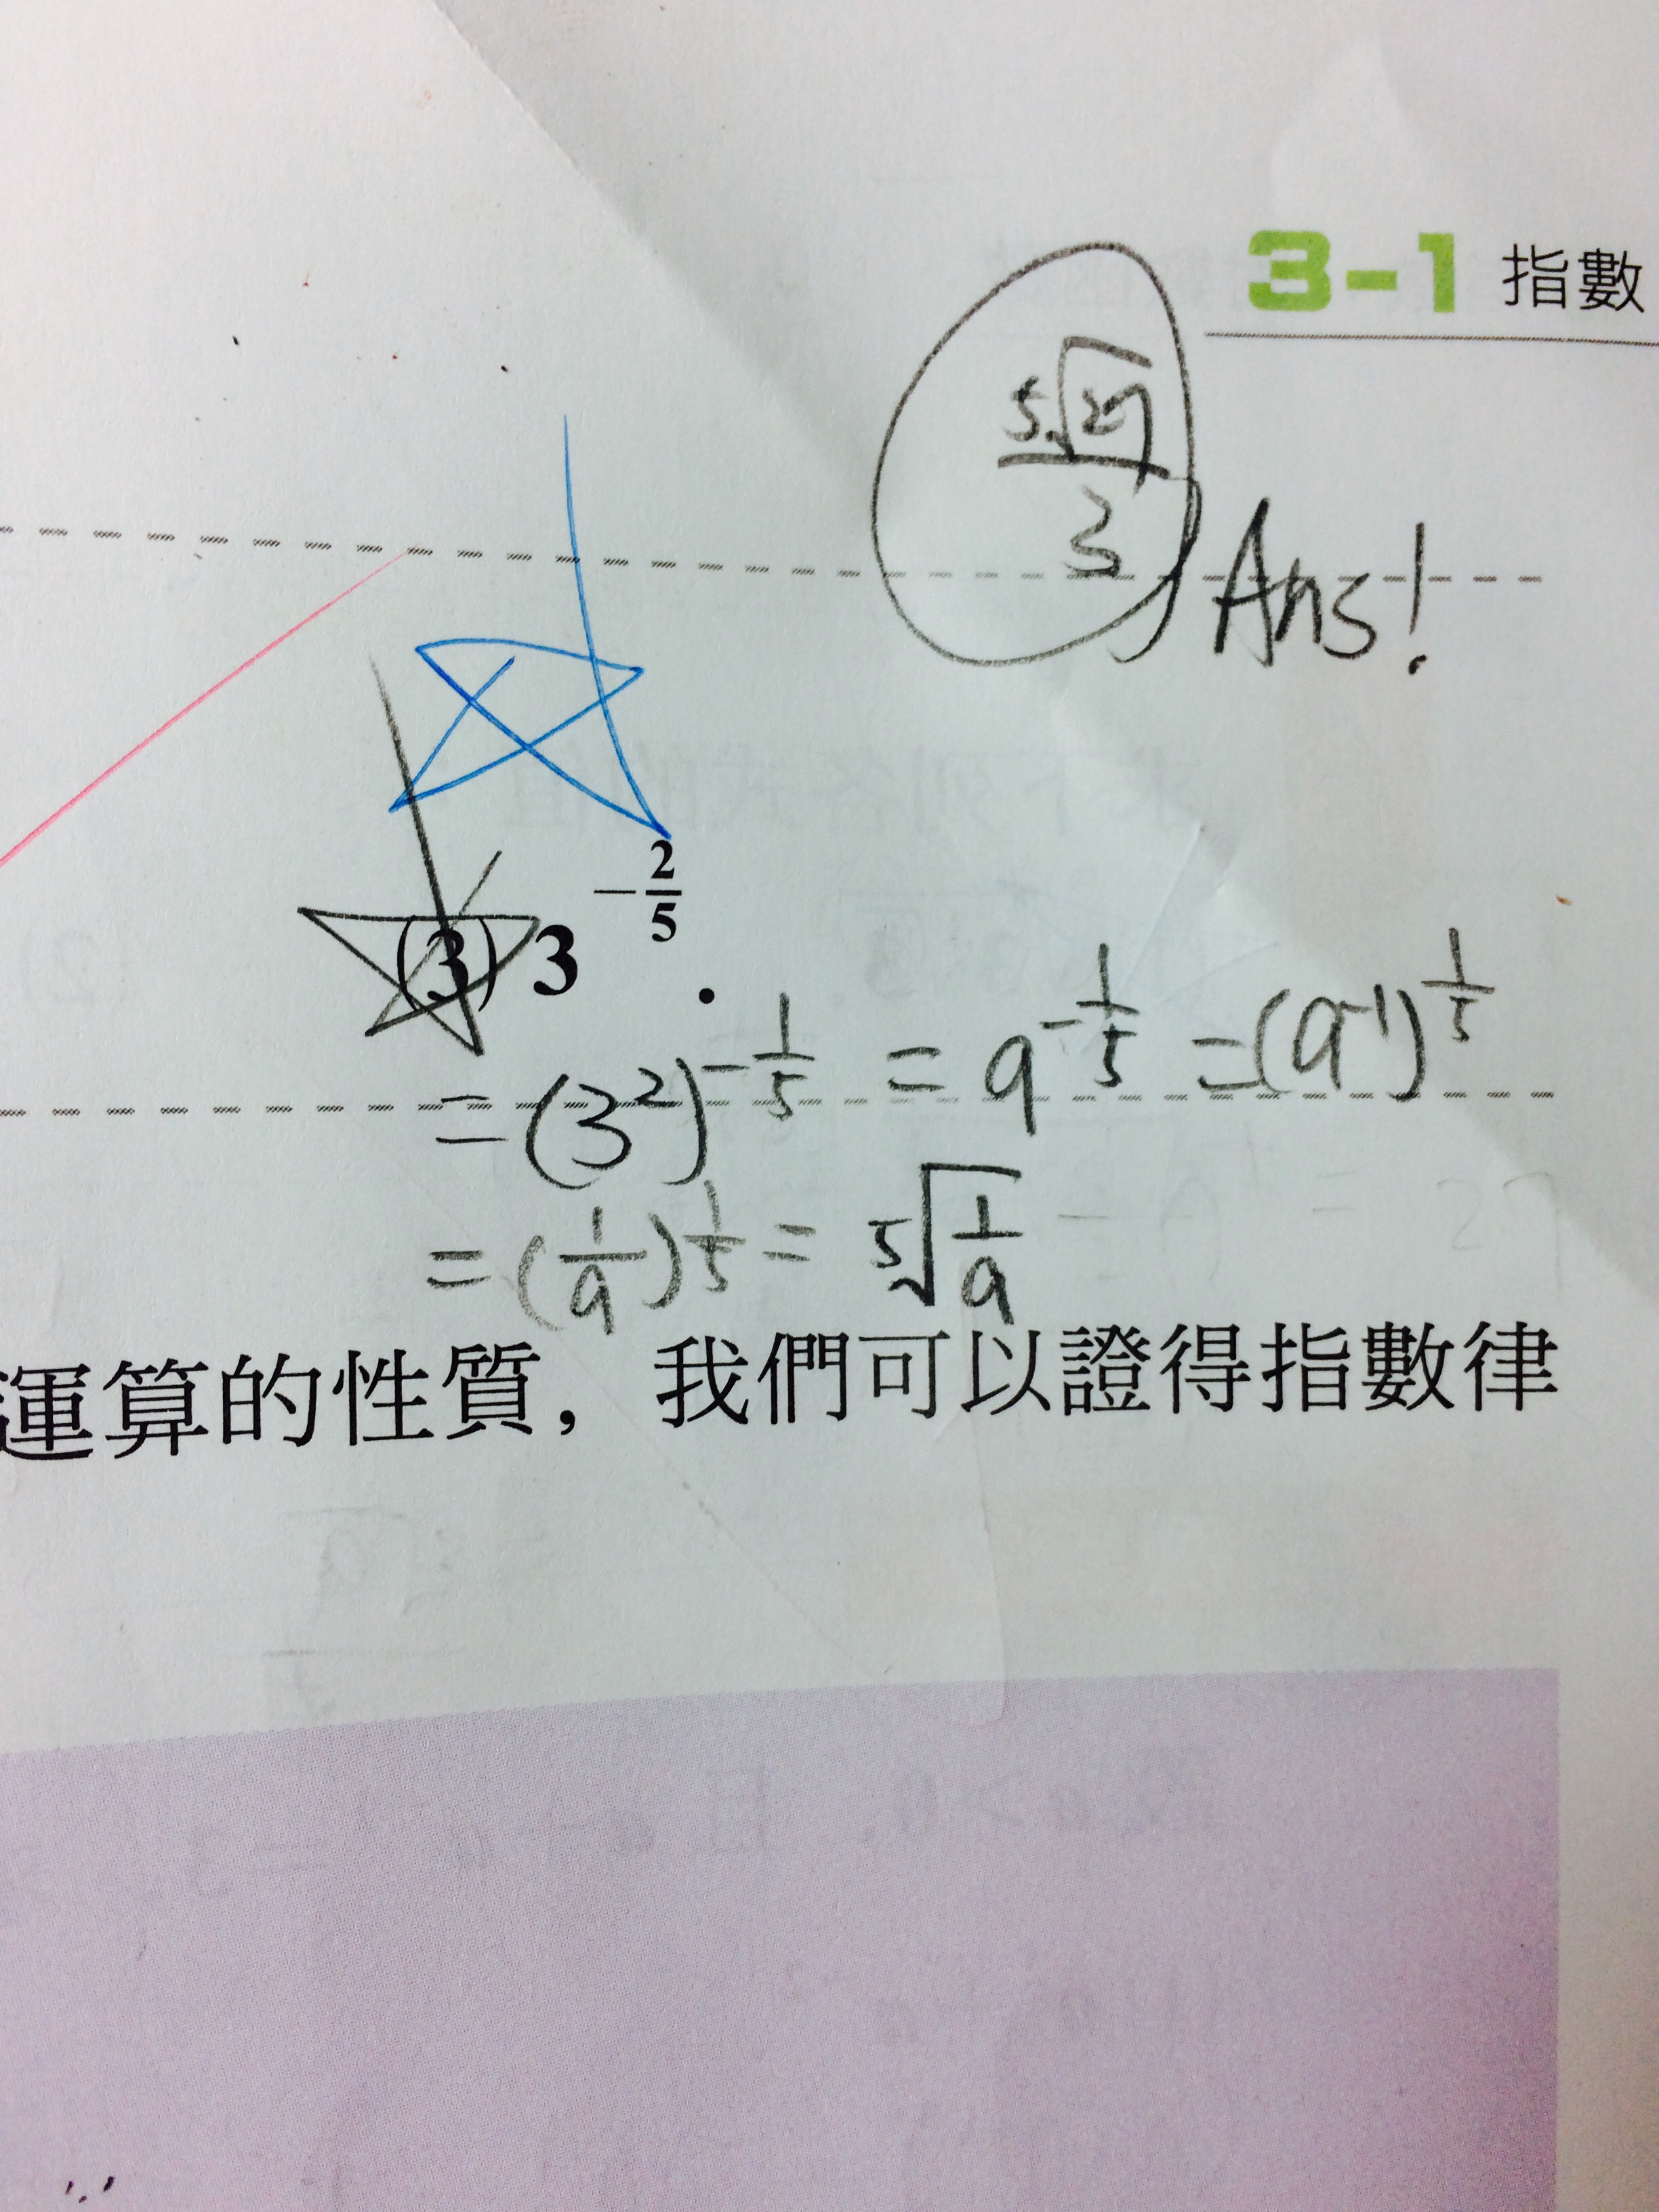 3-1 指數
⁵√27 / 3
Ans!
(3) 3^(-2/5).
= (3²)^(-1/5) = 9^(-1/5) = (9^-1)^(1/5)
= (1/9)^(1/5) = ⁵√(1/9)
運算的性質，我們可以證得指數律